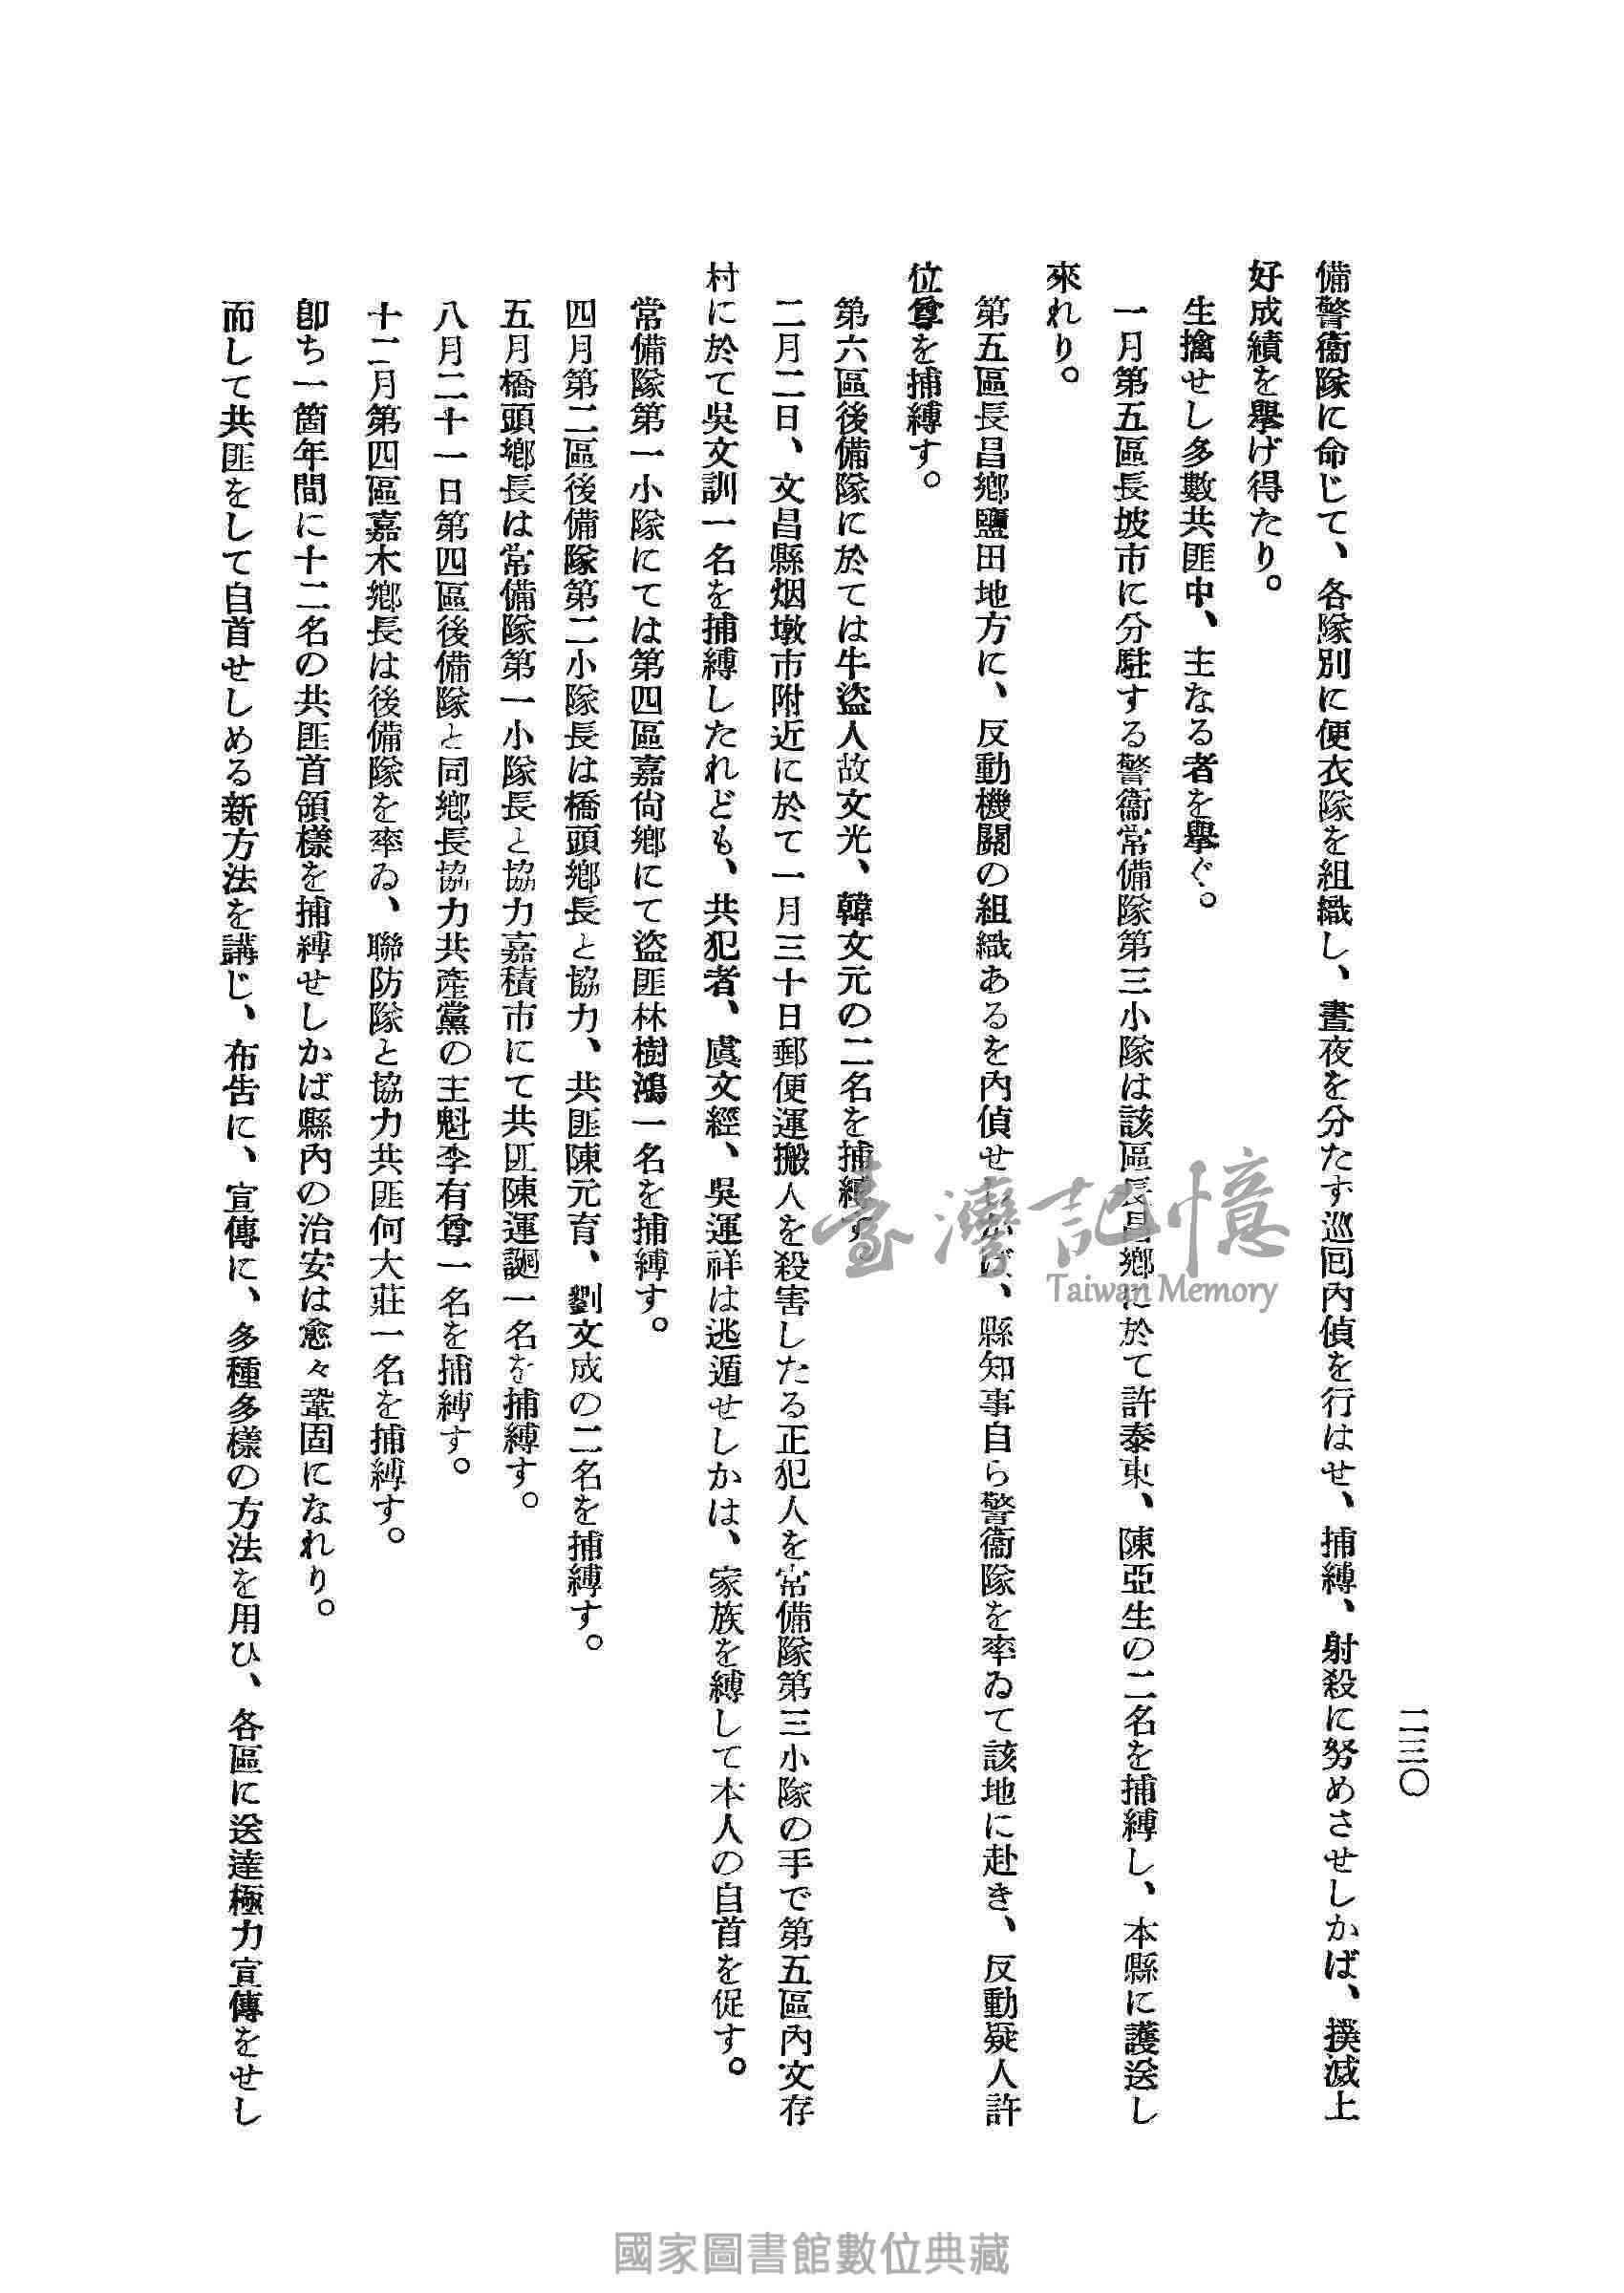 二三〇
備警衞隊に命じて、各隊別に便衣隊を組織し、晝夜を分たず巡囘內偵を行はせ、捕縛、射殺に努めさせしかば、撲滅上
好成績を擧げ得たり。
生擒せし多數共匪中、主なる者を擧ぐ。
一月第五區長坡市に分駐する警衞常備隊第三小隊は該區長昌鄕に於て許泰東、陳亞生の二名を捕縛し、本縣に護送し
來れり。
第五區長昌鄕鹽田地方に、反動機關の組織あるを內偵せしかば、縣知事自ら警衞隊を率ゐて該地に赴き、反動疑人許
位尊を捕縛す。
第六區後備隊に於ては牛盜人故文光、韓文元の二名を捕縛す。
二月二日、文昌縣烟墩市附近に於て一月三十日郵便運搬人を殺害したる正犯人を常備隊第三小隊の手で第五區內文存
村に於て吳文訓一名を捕縛したれども、共犯者、虞文經、吳運祥は逃遁せしかは、家族を縛して本人の自首を促す。
常備隊第一小隊にては第四區嘉尙鄕にて盜匪林樹鴻一名を捕縛す。
四月第二區後備隊第二小隊長は橋頭鄕長と協力、共匪陳元育、劉文成の二名を捕縛す。
五月橋頭鄕長は常備隊第一小隊長と協力嘉積市にて共匪陳運一名を捕縛す。
八月二十一日第四區後備隊と同鄕長協力共產黨の主魁李有尊一名を捕縛す。
十二月第四區嘉木鄕長は後備隊を率ゐ、聯防隊と協力共匪何大莊一名を捕縛す。
卽ち一箇年間に十二名の共匪首領樣を捕縛せしかば縣內の治安は愈々鞏固になれり。
而して共匪をして自首せしめる新方法を講じ、布告に、宣傳に、多種多樣の方法を用ひ、各區に送達極力宣傳をせし
臺灣記憶
Taiwan Memory
國家圖書館數位典藏